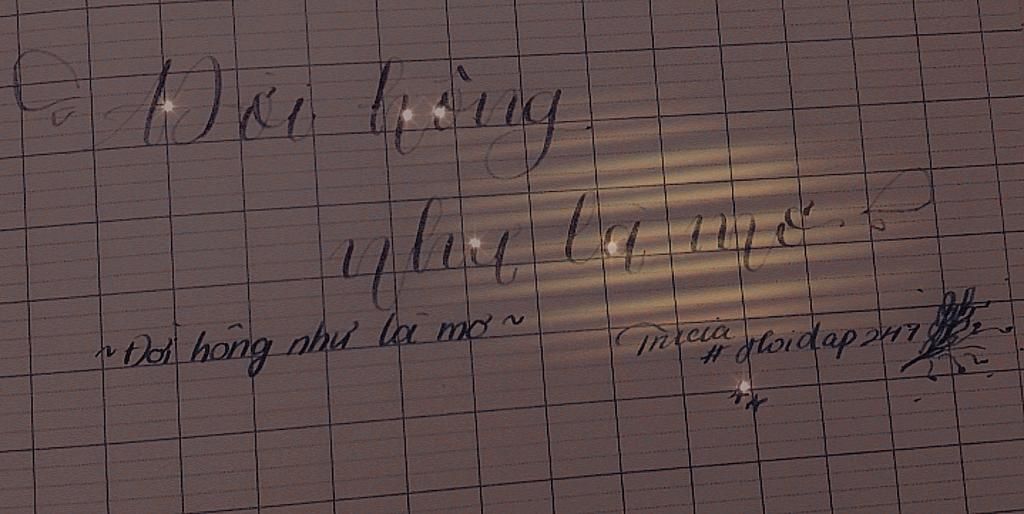 Đời hồng
như là mơ.
~ Đời hồng như là mơ ~
Tricia
# gioidap247